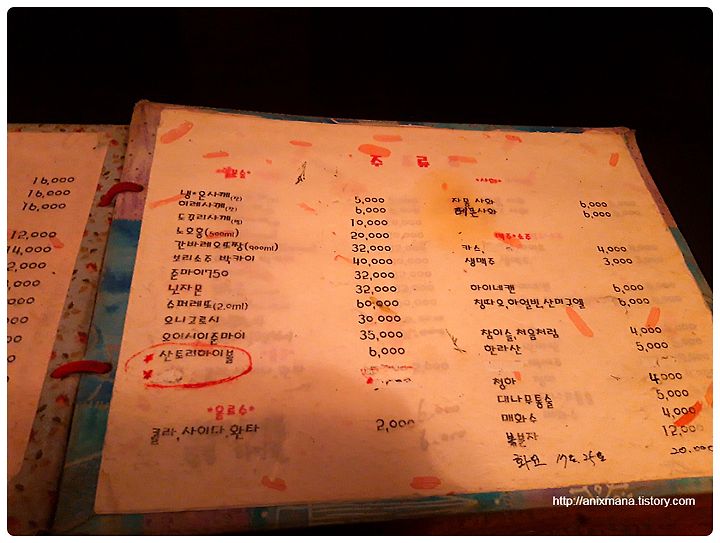 16,000
16,000
16,000
12,000
14,000
주 류
냉·온사께(잔) 5,000
히레사께(잔) 6,000
도꾸리사께(병) 10,000
노호홍(500ml) 20,000
간바레오또짱(900ml) 32,000
보리소주 박카이 40,000
준마이750 32,000
닌자몬 32,000
슈퍼레또(2.0ml) 60,000
오니고로시 30,000
오이시이준마이 35,000
산토리하이볼 6,000
*음료수*
콜라, 사이다 환타 2,000
*사와*
자몽 사와 6,000
레몬사와 6,000
맥주&소주
카스 4,000
생맥주 3,000
하이네켄 6,000
칭따오, 아얼빈, 산미구엘 6,000
참이슬, 처음처럼 4,000
한라산 5,000
청하 4,000
대나무통술 5,000
매화수 4,000
복분자 12,000
화요 17도. 25도 20.000
http://anixmana.tistory.com